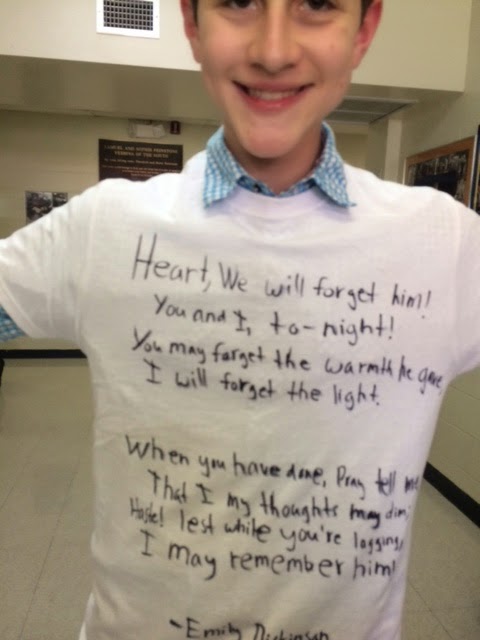 Heart, We will forget him!
You and I, to-night!
You may forget the warmth he gave,
I will forget the light.
When you have done, Pray tell me
That I my thoughts may dim;
Haste! lest while you're lagging,
I may remember him!
-Emily Dickinson